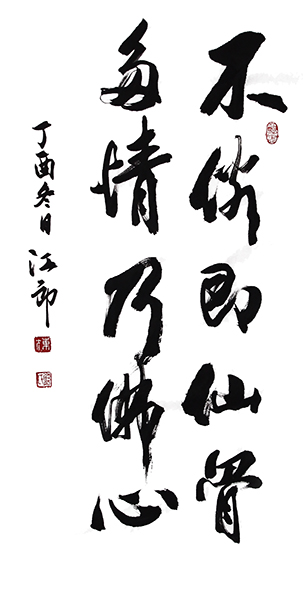 不俗即仙骨
多情乃佛心
丁酉冬日 江郎